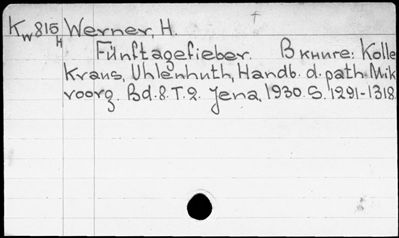 Kw815 Werner, H.
H
Fünftagefieber. В книге: Kolle
Kraus, Uhlenhuth, Handb. d. path. Mik
roorg. Bd. 8. T. 2. Jena, 1930. S. 1291-1318.